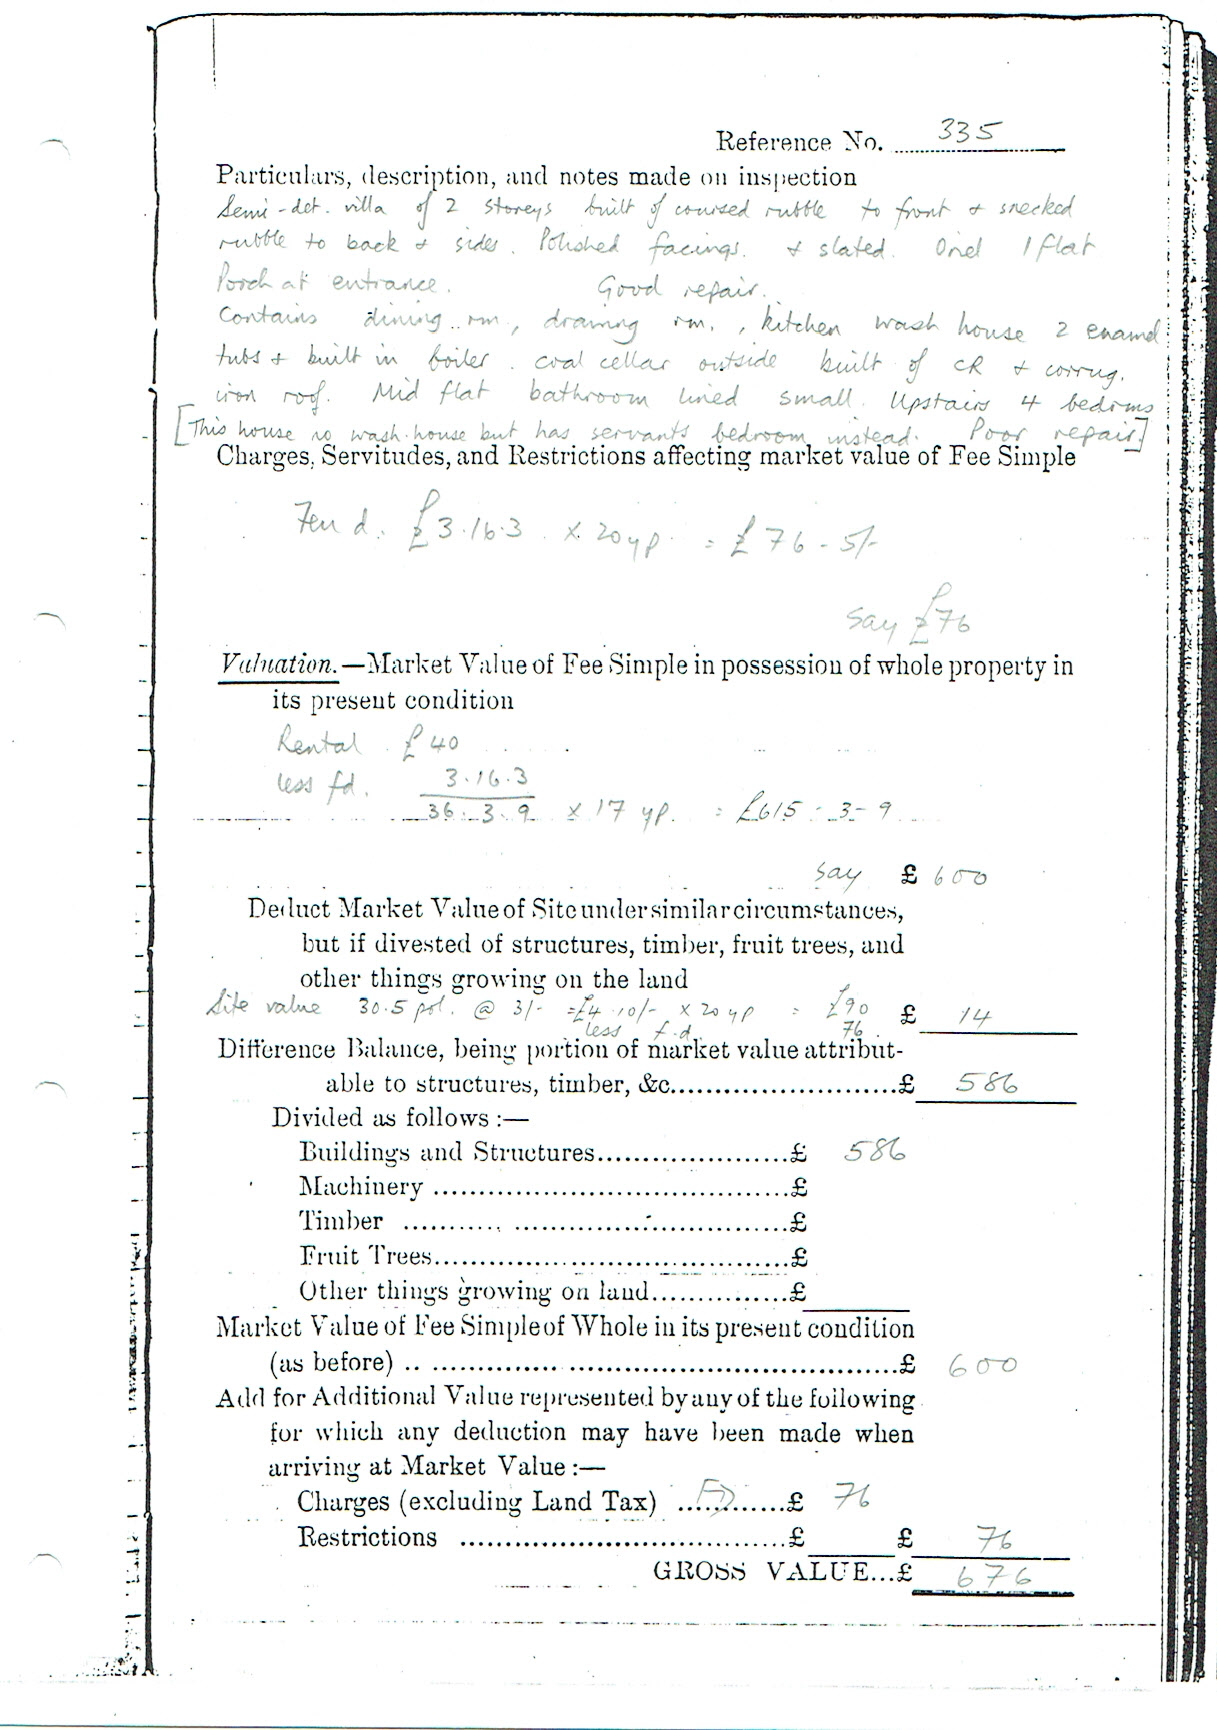 Reference No. 335
Particulars, description, and notes made on inspection
Semi-det. villa of 2 storeys built of coursed rubble to front & snecked
rubble to back & sides. Polished facings. & slated. Oriel 1 flat
Porch at entrance. Good repair.
Contains dining rm, drawing rm., kitchen wash house 2 enamel
tubs & built in boiler. coal cellar outside built of CR & corrug.
iron roof. Mid flat bathroom lined small. Upstairs 4 bedrms
[This house no wash.house but has servants bedroom instead. Poor repair]
Charges, Servitudes, and Restrictions affecting market value of Fee Simple
Feu d. £3.16.3 x 20 yp. = £76-5/-
say £76
Valuation.—Market Value of Fee Simple in possession of whole property in
its present condition
Rental £40
less fd. 3.16.3
36.3.9 x 17 yp. = £615-3-9
say £600
Deduct Market Value of Site under similar circumstances,
but if divested of structures, timber, fruit trees, and
other things growing on the land
Site value 30.5 pol. @ 3/- = £4.10/- x 20 yp = £90 £ 14
less f.d. 76
Difference Balance, being portion of market value attribut-
able to structures, timber, &c........................£ 586
Divided as follows :—
Buildings and Structures.....................£ 586
Machinery ......................................£
Timber ..........................................£
Fruit Trees.......................................£
Other things growing on land...............£
Market Value of Fee Simple of Whole in its present condition
(as before) .. ................................................£ 600
Add for Additional Value represented by any of the following
for which any deduction may have been made when
arriving at Market Value :—
Charges (excluding Land Tax) ....FD......£ 76
Restrictions ....................................£ £ 76
GROSS VALUE...£ 676